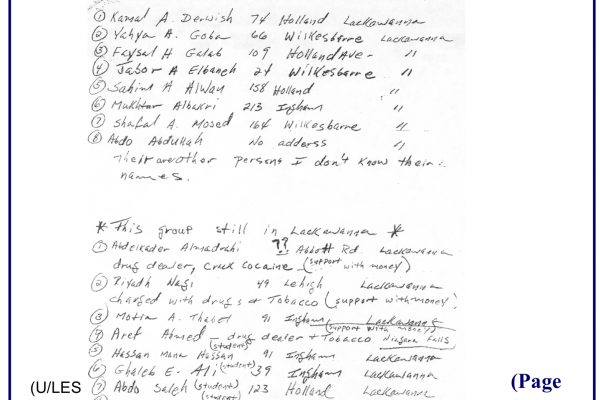 ① Kamal A. Derwish 74 Holland Lackawanna
② Yahya A. Goba 66 Wilkesbarre Lackawanna
③ Faysal H Galab 109 Holland Ave- "
④ Jabor A Elbaneh 24 Wilkesbarre "
⑤ Sahim A Alwan 158 Holland "
⑥ Mukhtar Albakri 213 Ingham "
⑦ Shafal A. Mosed 164 Wilkesbarre "
⑧ Abdo Abdullah No adderss "
Their are other persons I don't know their
names.
* This group still in Lackawanna *
① Abdelkader Almadrahi ?? Abbott Rd. Lackawanna
drug dealer, crack cocaine (support with money)
② Riyadh Nagi 49 Lehigh Lackawanna
charged with drugs & Tobacco (support with money)
③ A. Thabet 91 Ingham, Lackawanna
(support with money)
4 Aref Ahmed - drug dealer & Tobacco Niagara Falls
5 Hassan Mana Hassan (student) 91 Ingham Lackawanna
6 Ghaleb E. Ali (student) 39 Ingham Lackawanna
7 Abdo Saleh (student) 123 Holland Lackawanna
(student)
(U/LES
(Page